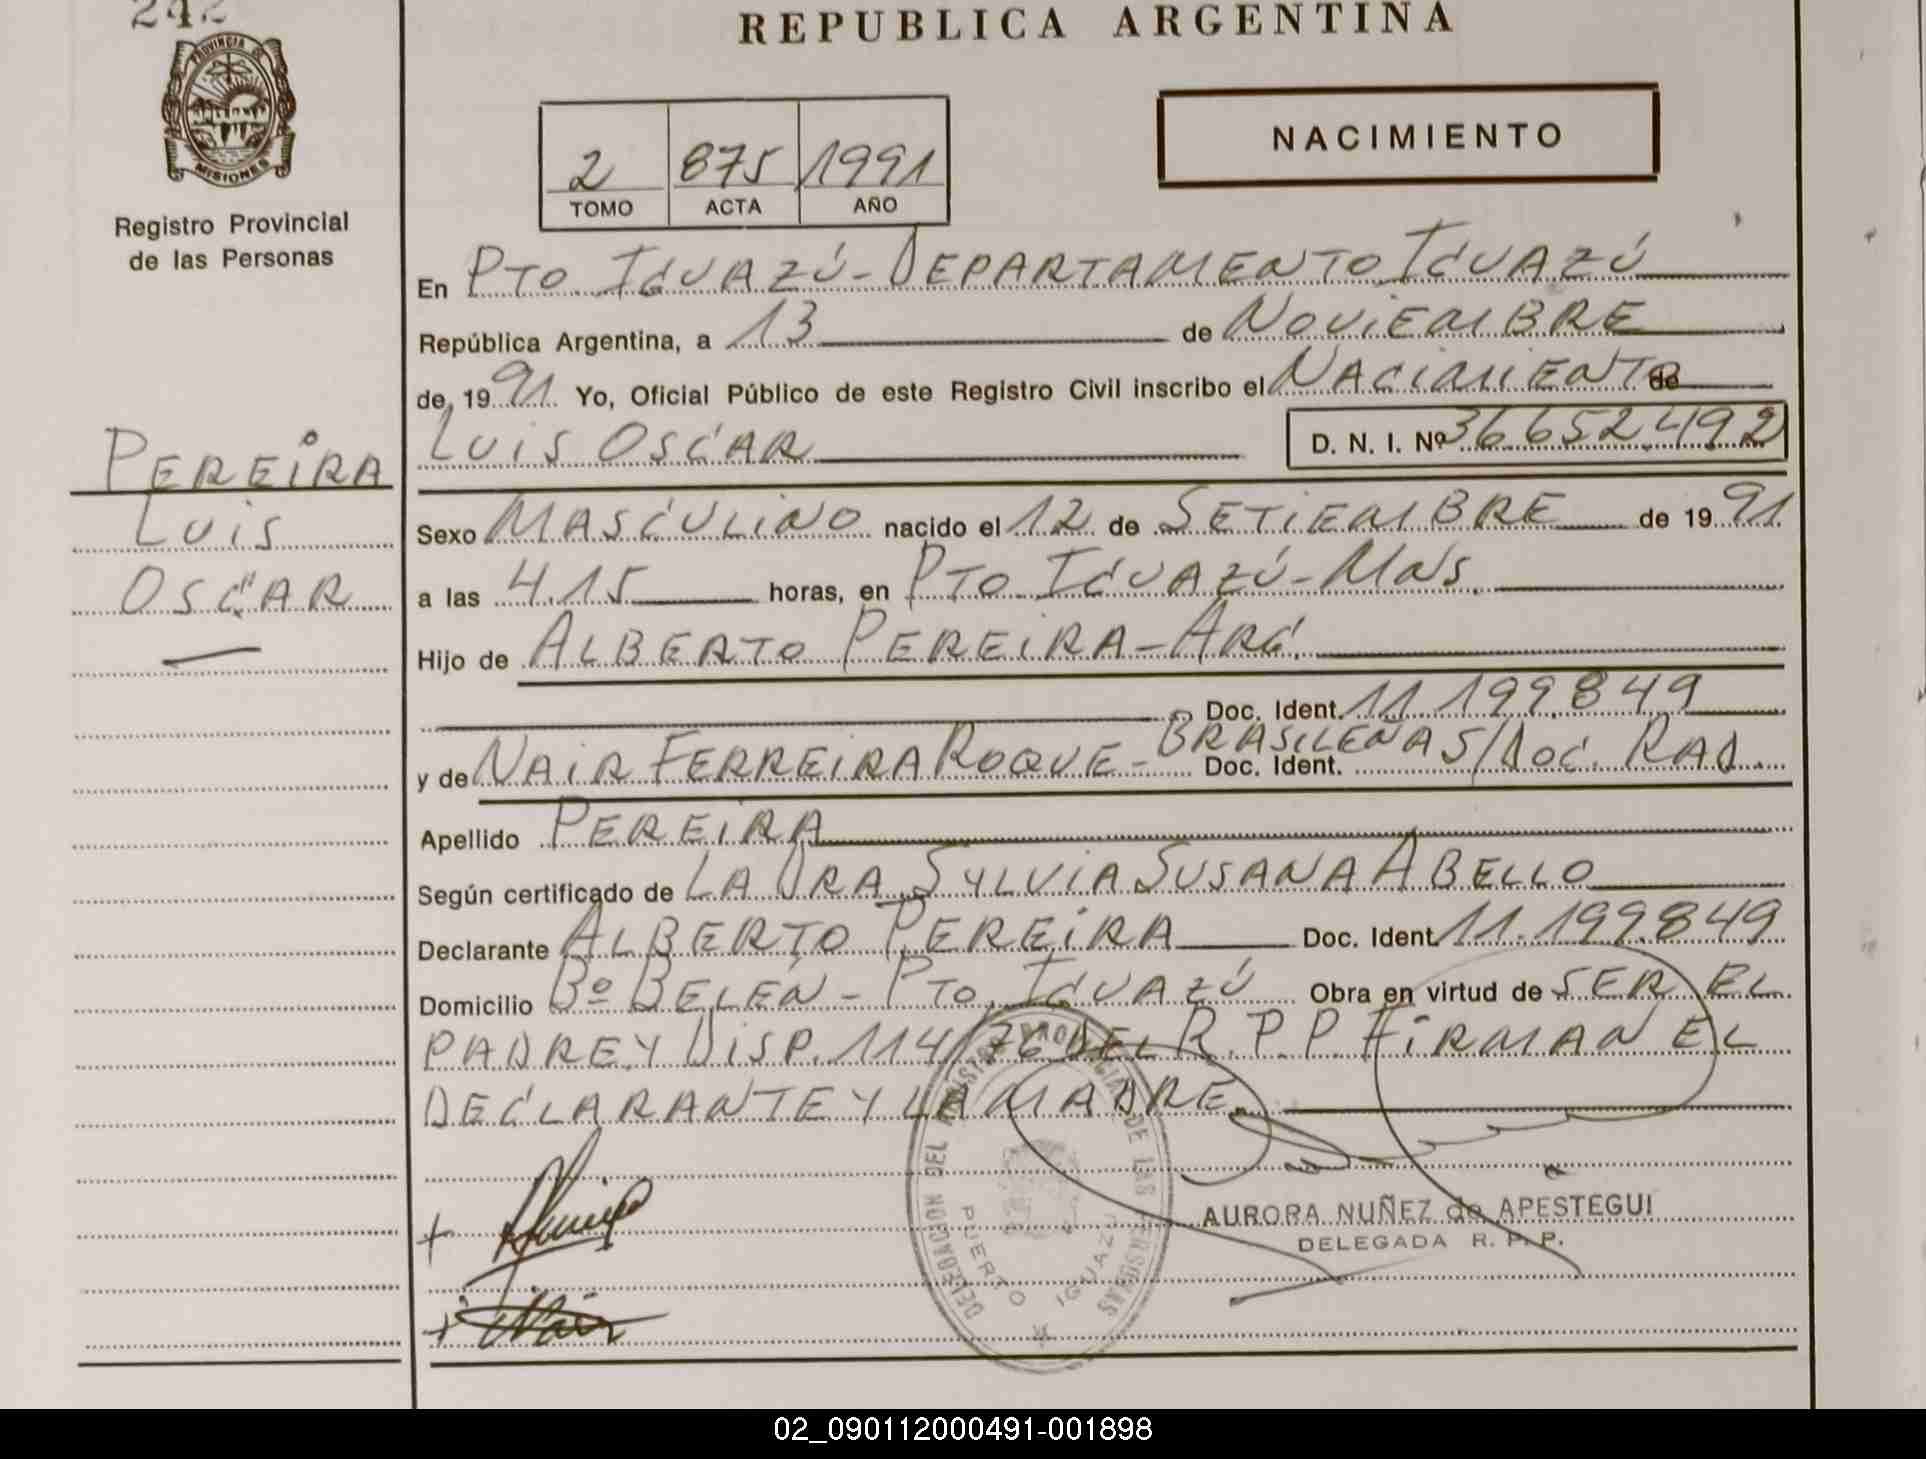 242
PROVINCIA DE
MISIONES
Registro Provincial
de las Personas
PEREIRA
LUIS
OSCAR
REPUBLICA ARGENTINA
NACIMIENTO
2 875 1991
TOMO ACTA AÑO
En PTO. IGUAZÚ - DEPARTAMENTO IGUAZÚ
República Argentina, a 13 de NOVIEMBRE
de 19 91. Yo, Oficial Público de este Registro Civil inscribo el NACIMIENTO de
LUIS OSCAR D. N. I. Nº 36652.492
Sexo MASCULINO nacido el 12 de SETIEMBRE de 19 91
a las 4.15 horas, en PTO. IGUAZÚ - MNS.
Hijo de ALBERTO PEREIRA - ARG.
Doc. Ident. 11.199.849
y de NAIR FERREIRA ROQUE - BRASILEÑA Doc. Ident. S/DOC. RAD.
Apellido PEREIRA
Según certificado de LA DRA. SYLVIA SUSANA ABELLO
Declarante ALBERTO PEREIRA Doc. Ident. 11.199.849
Domicilio Bº BELÉN - PTO. IGUAZÚ Obra en virtud de SER EL
PADRE Y DISP. 114/76 DEL R.P.P. FIRMAN EL
DECLARANTE Y LA MADRE.
+
+ Nair
DELEGACION DEL REGISTRO PROVINCIAL DE LAS PERSONAS
PUERTO IGUAZU
AURORA NUÑEZ de APESTEGUI
DELEGADA R. P. P.
02_090112000491-001898